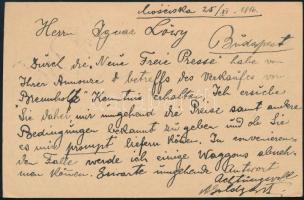 Mościska 25/XI 1916.
Herrn Ignac Löwy
Budapest
Durch die „Neue Freie Presse" habe von
Ihrer Annonce betreffs des Verkaufes von
Brennholz Kenntnis erhalten. Ich ersuche
Sie daher mir umgehend die Preise samt andere
Bedingungen bekannt zu geben und ob Sie
es mir prompt liefern können. In convenieren
den Falle werde ich einige Waggons abneh
men können. Erwarte umgehende Antwort
Achtungsvoll